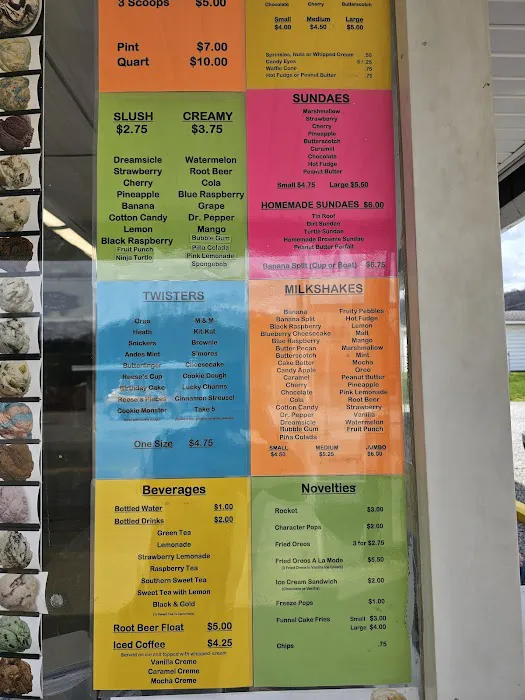 3 Scoops $5.00
Pint $7.00
Quart $10.00
Chocolate Cherry Butterscotch
Small Medium Large
$4.00 $4.50 $5.00
Sprinkles, Nuts or Whipped Cream .50
Candy Eyes
Waffle Cone .75
Hot Fudge or Peanut Butter .75
SLUSH CREAMY
$2.75 $3.75
Dreamsicle Watermelon
Strawberry Root Beer
Cherry Cola
Pineapple Blue Raspberry
Banana Grape
Cotton Candy Dr. Pepper
Lemon Mango
Black Raspberry Bubble Gum
Fruit Punch Piña Colada
Ninja Turtle Pink Lemonade
Spongebob
SUNDAES
Marshmallow
Strawberry
Cherry
Pineapple
Butterscotch
Caramel
Chocolate
Hot Fudge
Peanut Butter
Small $4.75 Large $5.50
HOMEMADE SUNDAES $6.00
Tin Roof
Dirt Sundae
Turtle Sundae
Homemade Brownie Sundae
Peanut Butter Parfait
Banana Split (Cup or Boat) $6.75
TWISTERS
Oreo M & M
Heath Kit-Kat
Snickers Brownie
Andes Mint S'mores
Butterfinger Cheesecake
Reese's Cup Cookie Dough
Birthday Cake Lucky Charms
Reese's Pieces Cinnamon Streusel
Cookie Monster Take 5
One Size $4.75
MILKSHAKES
Banana Fruity Pebbles
Banana Split Hot Fudge
Black Raspberry Lemon
Blueberry Cheesecake Malt
Blue Raspberry Mango
Butter Pecan Marshmallow
Butterscotch Mint
Cake Batter Mocha
Candy Apple Oreo
Caramel Peanut Butter
Cherry Pineapple
Chocolate Pink Lemonade
Cola Root Beer
Cotton Candy Strawberry
Dr. Pepper Vanilla
Dreamsicle Watermelon
Bubble Gum Fruit Punch
Pina Colada
SMALL MEDIUM JUMBO
$4.50 $5.25 $6.00
Beverages
Bottled Water $1.00
Bottled Drinks $2.00
Green Tea
Lemonade
Strawberry Lemonade
Raspberry Tea
Southern Sweet Tea
Sweet Tea with Lemon
Black & Gold
Root Beer Float $5.00
Iced Coffee $4.25
Served on ice and topped with whipped cream
Vanilla Creme
Caramel Creme
Mocha Creme
Novelties
Rocket $3.00
Character Pops
Fried Oreos 3 for $2.75
Fried Oreos A La Mode $5.50
Ice Cream Sandwich $2.00
(Chocolate or Vanilla)
Freeze Pops $1.00
Funnel Cake Fries Small $3.00
Large $4.00
Chips .75